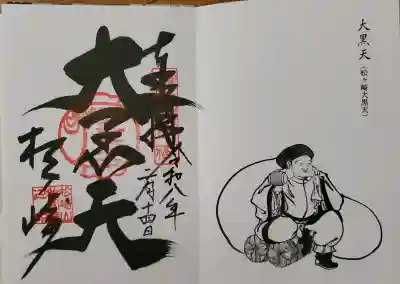 奉拝
大黒天
松ヶ崎
令和八年
二月十四日
大黒天(松ヶ崎大黒天)